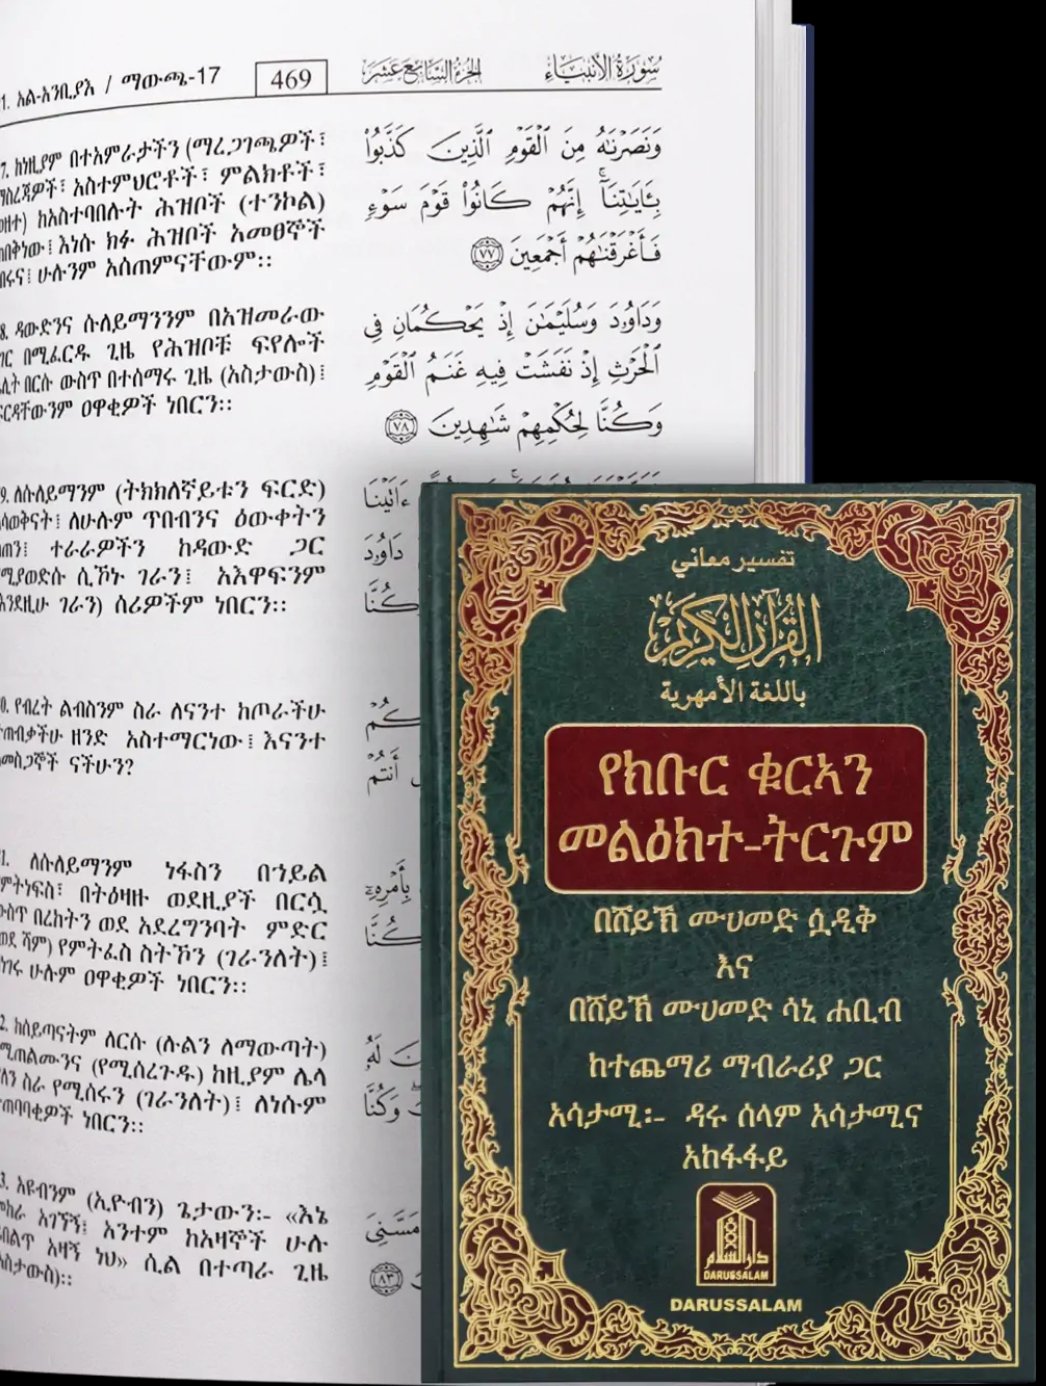 አል-አንቢያእ / ማውጫ-17
469
الجزء السابع عشر
سورة الأنبياء
ከነዚያም በተአምራታችን (ማረጋገጫዎች፣
ማስረጃዎች፣ አስተምህሮቶች፣ ምልክቶች፣
ከአስተባበሉት ሕዝቦች (ተንኮል)
እነሱ ክፉ ሕዝቦች አመፀኞች
ሁሉንም አሰጠምናቸውም፡፡
وَنَصَرْنَٰهُ مِنَ ٱلْقَوْمِ ٱلَّذِينَ كَذَّبُوا۟
بِـَٔايَٰتِنَآ ۚ إِنَّهُمْ كَانُوا۟ قَوْمَ سَوْءٍ
فَأَغْرَقْنَٰهُمْ أَجْمَعِينَ ٧٧
ዳውድንና ሱለይማንንም በአዝመራው
በሚፈርዱ ጊዜ የሕዝቦቹ ፍየሎች
በርሱ ውስጥ በተሰማሩ ጊዜ (አስታውስ)፤
ዐዋቂዎች ነበርን፡፡
وَدَاوُۥدَ وَسُلَيْمَٰنَ إِذْ يَحْكُمَانِ فِى
ٱلْحَرْثِ إِذْ نَفَشَتْ فِيهِ غَنَمُ ٱلْقَوْمِ
وَكُنَّا لِحُكْمِهِمْ شَٰهِدِينَ ٧٨
ለሱለይማንም (ትክክለኛይቱን ፍርድ)
ለሁሉም ጥበብንና ዕውቀትን
ተራራዎችን ከዳውድ ጋር
ሲኾኑ ገራን፤ አእዋፍንም
ገራን) ሰሪዎችም ነበርን፡፡
ءَاتَيْنَا
دَاوُۥدَ
كُنَّا
የብረት ልብስንም ስራ ለናንተ ከጦራችሁ
ዘንድ አስተማርነው፤ እናንተ
ናችሁን?
أَنتُم
ለሱለይማንም ነፋስን በኀይል
በትዕዛዙ ወደዚያች በርሷ
በረከትን ወደ አደረግንባት ምድር
ሻም) የምትፈስ ስትኾን (ገራንለት)፤
ሁሉም ዐዋቂዎች ነበርን፡፡
بِأَمْرِهِۦٓ
كُنَّا
ከሰይጣናትም ለርሱ (ሉልን ለማውጣት)
(የሚሰረጉዱ) ከዚያም ሌላ
ስራ የሚሰሩን (ገራንለት)፤ ለነሱም
ጠባባቂዎች ነበርን፡፡
لَهُۥ
وَكُنَّا
አዩብንም (ኢዮብን) ጌታውን፡- «እኔ
አገኘኝ፤ አንተም ከአዛኞች ሁሉ
አዛኝ ነህ» ሲል በተጣራ ጊዜ
مَسَّنِىَ
٨٣
تفسير معاني
القرآن الكريم
باللغة الأمهرية
የክቡር ቁርኣን
መልዕክተ-ትርጉም
በሸይኽ ሙሀመድ ሷዲቅ
እና
በሸይኽ ሙሀመድ ሳኒ ሐቢብ
ከተጨማሪ ማብራሪያ ጋር
አሳታሚ፡- ዳሩ ሰላም አሳታሚና
አከፋፋይ
دار السلام
DARUSSALAM
DARUSSALAM